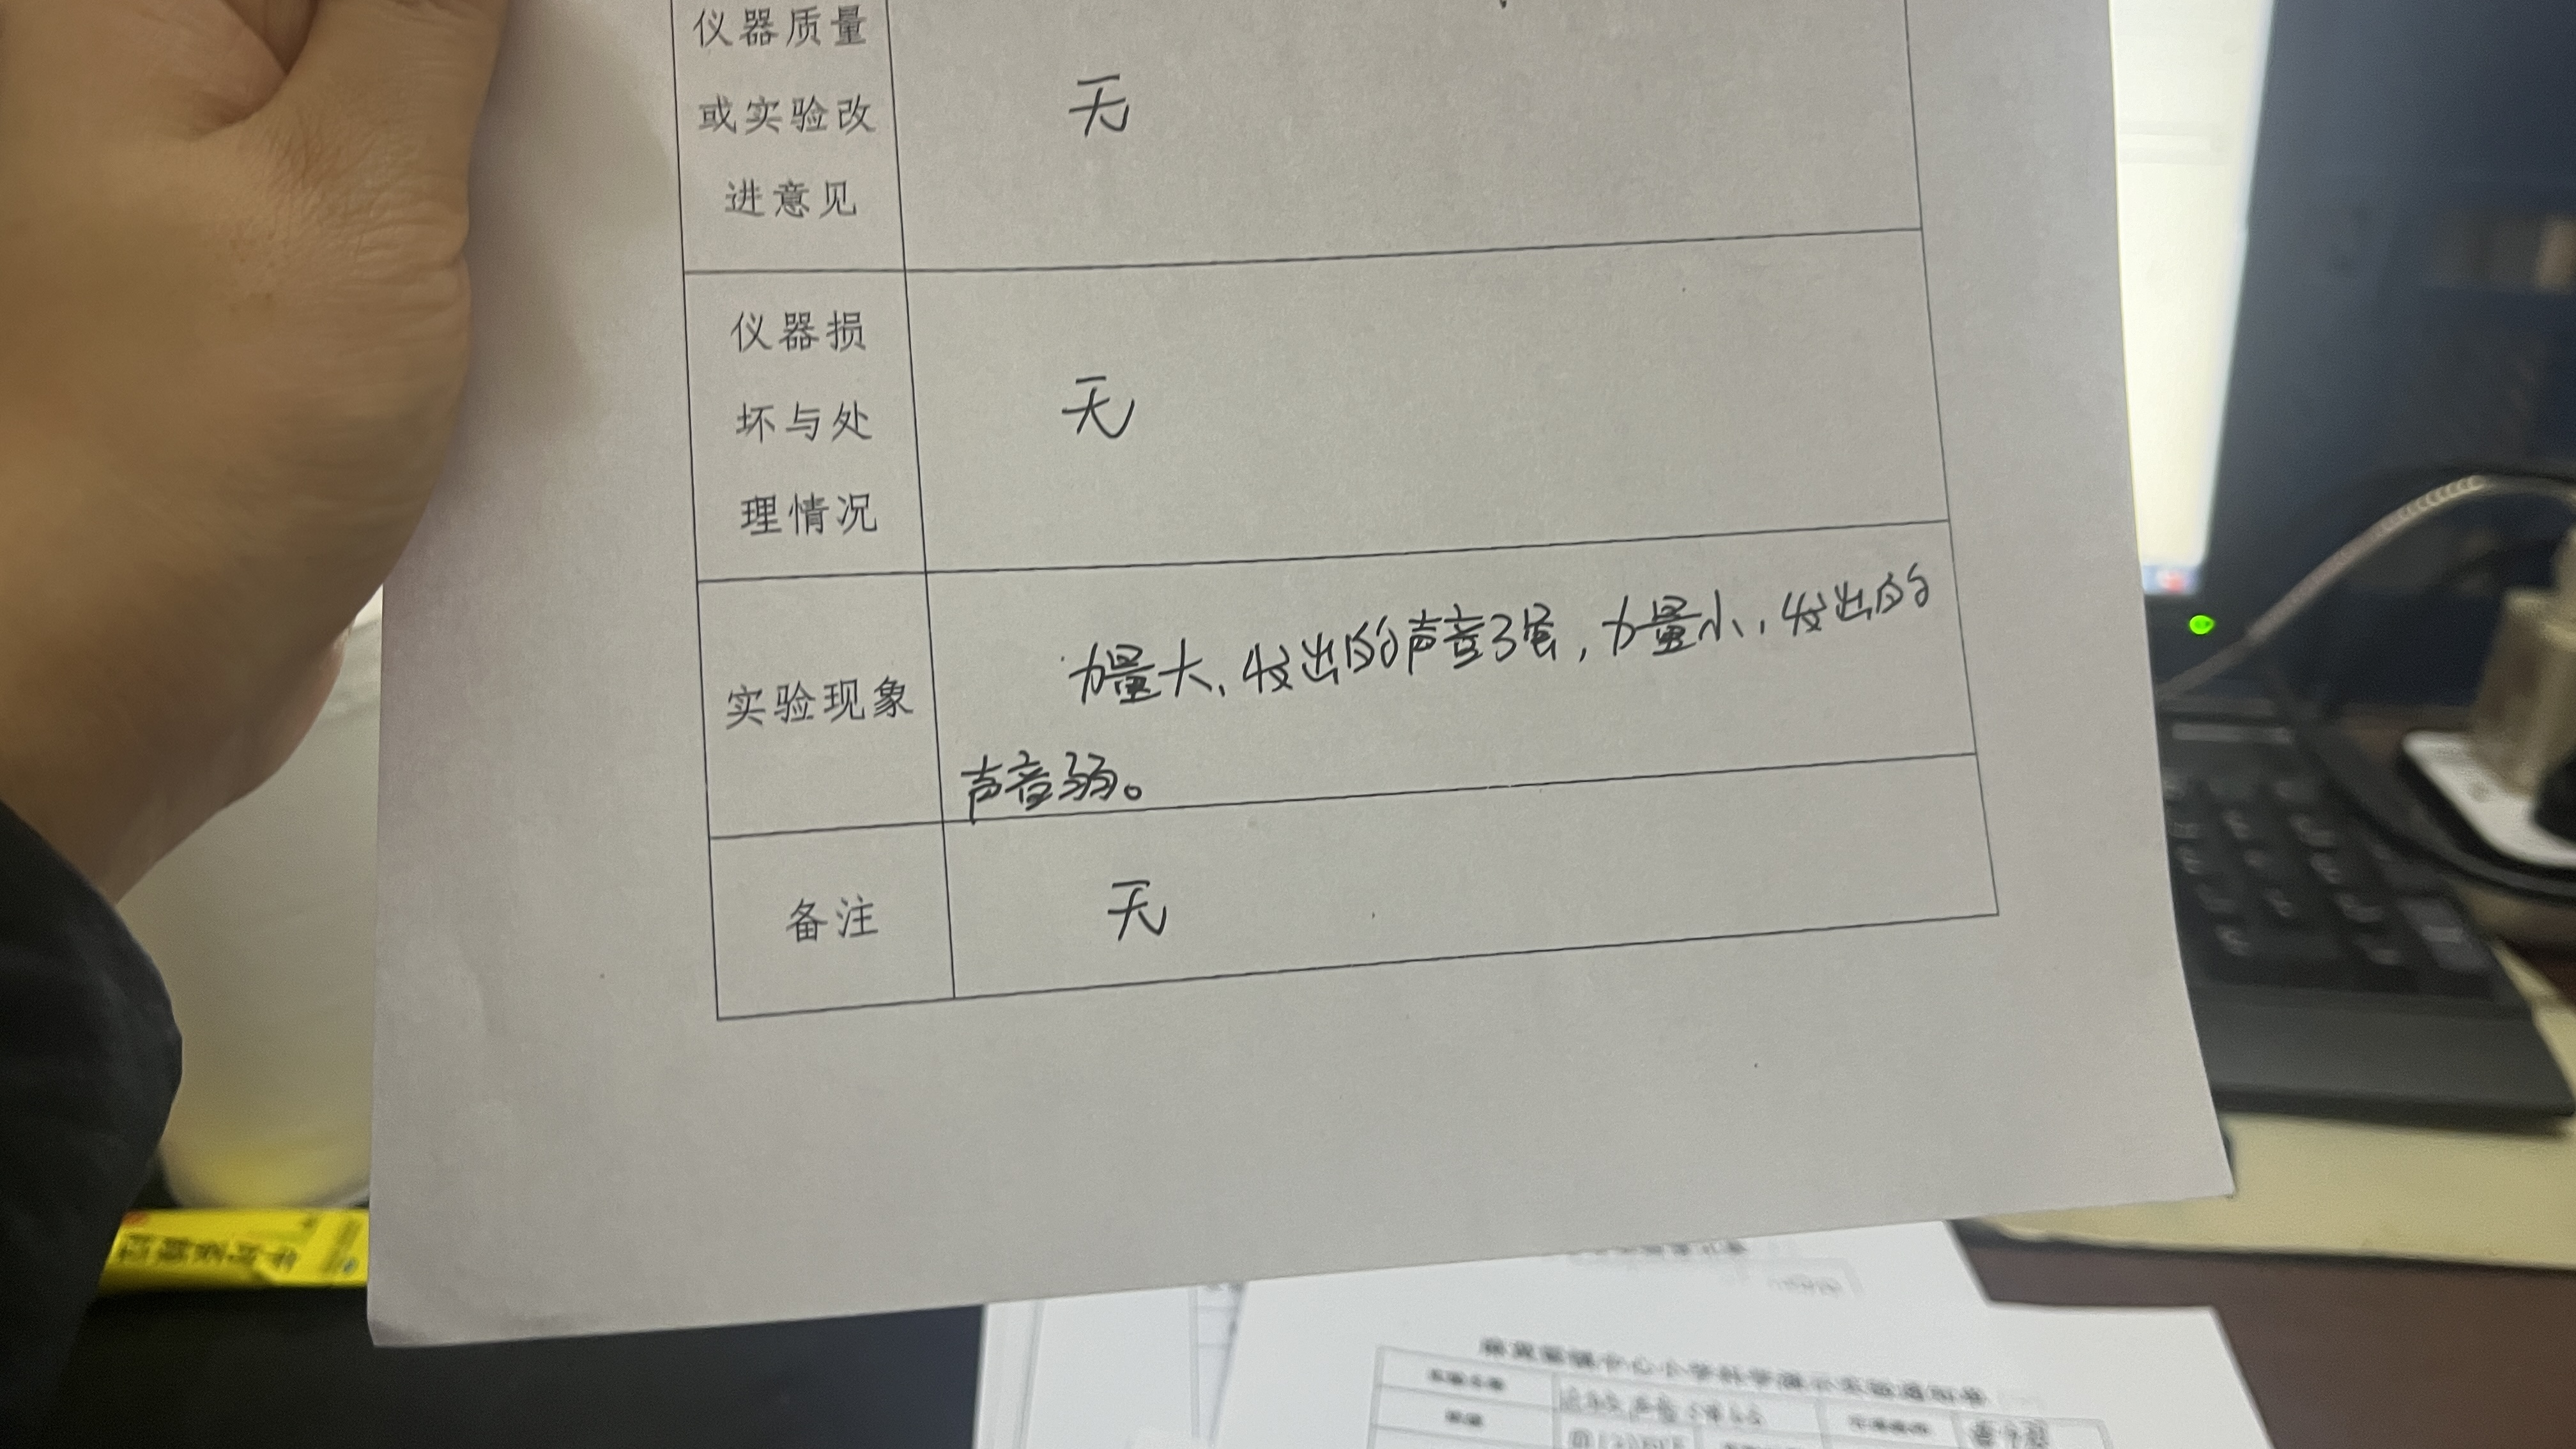 仪器质量
或实验改
进意见
无
仪器损
坏与处
理情况
无
实验现象
力量大，发出的声音强，力量小，发出的
声音弱。
备注
无